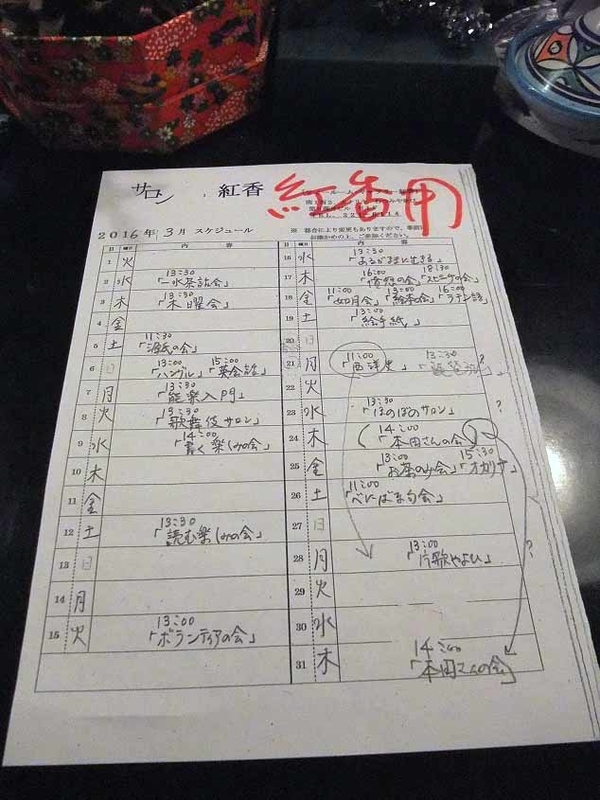 サロン 紅香 紅香用
2016年 3月 スケジュール
※ 都合により変更もありますので、事前に
お確かめの上、ご参加ください。
日 曜日 内 容
1 火
2 水 13:30 「一水茶話会」
3 木 13:30 「木曜会」
4 金
5 土 11:30 「源氏の会」
6 日 13:00 「ハングル」 15:00 「英会話」
7 月 13:30 「能楽入門」
8 火 13:30 「歌舞伎サロン」
9 水 14:00 「書く楽しみの会」
10 木
11 金
12 土 13:30 「読む楽しみの会」
13 日
14 月
15 火 13:00 「ボランティアの会」
日 曜日 内 容
16 水 13:30 「あるがままに生きる」
17 木 16:00 18:30 「スピニサの会」
18 金 11:00 「如月会」 13:00 「絵本の会」 16:00 「ラテン語」
19 土 13:00 「絵手紙」
20 日
21 月 11:00 「西洋史」 13:30 ?
22 火
23 水 13:30 「ほのぼのサロン」 ?
24 木 (14:00 「本田さんの会」)
25 金 13:00 「お茶のみ会」 15:30 「オカリナ」
26 土 11:00 「べにばな句会」
27 日
28 月 13:00 「片歌やよい」 ?
29 火
30 水
31 木 14:00 「本田さんの会」